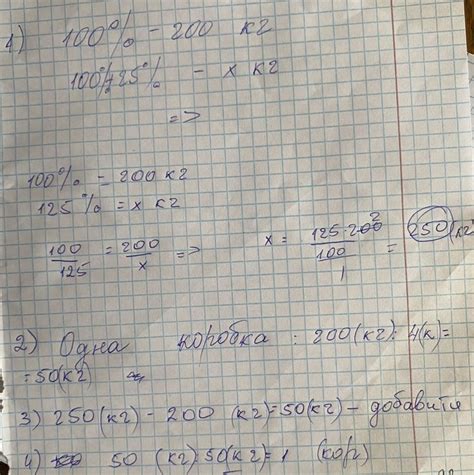 1) 100% - 200 кг
100%+25% - х кг
=>
100% = 200 кг
125% = х кг
100/125 = 200/х => х = 125·200/100 = 250 (кг)
2
1
2) Одна коробка : 200(кг): 4(к)=
=50(кг)
3) 250(кг) - 200 (кг)=50(кг) - добавити
4) 50 (кг):50(кг)=1 (кор)